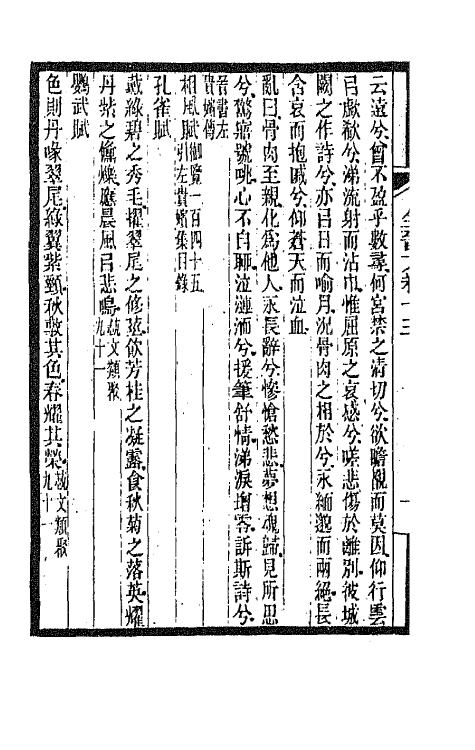 云遠兮曾不盈乎數尋何宮禁之清切兮欲瞻覩而莫因仰行雲
㠯歔欷兮涕流射而沾巾惟屈原之哀感兮嗟悲傷於離別彼城
闕之作詩兮亦㠯日而喻月况骨肉之相於兮永緬邈而兩絕長
含哀而抱戚兮仰蒼天而泣血
亂曰骨肉至親化爲他人永長辭兮慘愴愁悲夢想魂歸見所思
兮驚寤號咷心不自聊泣漣洏兮援筆舒情涕淚增零訴斯詩兮
晉書左
貴嬪傳
相風賦御覽一百四十五
引左貴嬪集目錄
孔雀賦
戴綠碧之秀毛擢翠尾之修莖飲芳桂之凝露食秋菊之落英耀
丹紫之儵爍應晨風㠯悲鳴藝文類聚
九十一
鸚武賦
色則丹喙翠尾綠翼紫頸秋敷其色春耀其榮藝文類聚
九十一